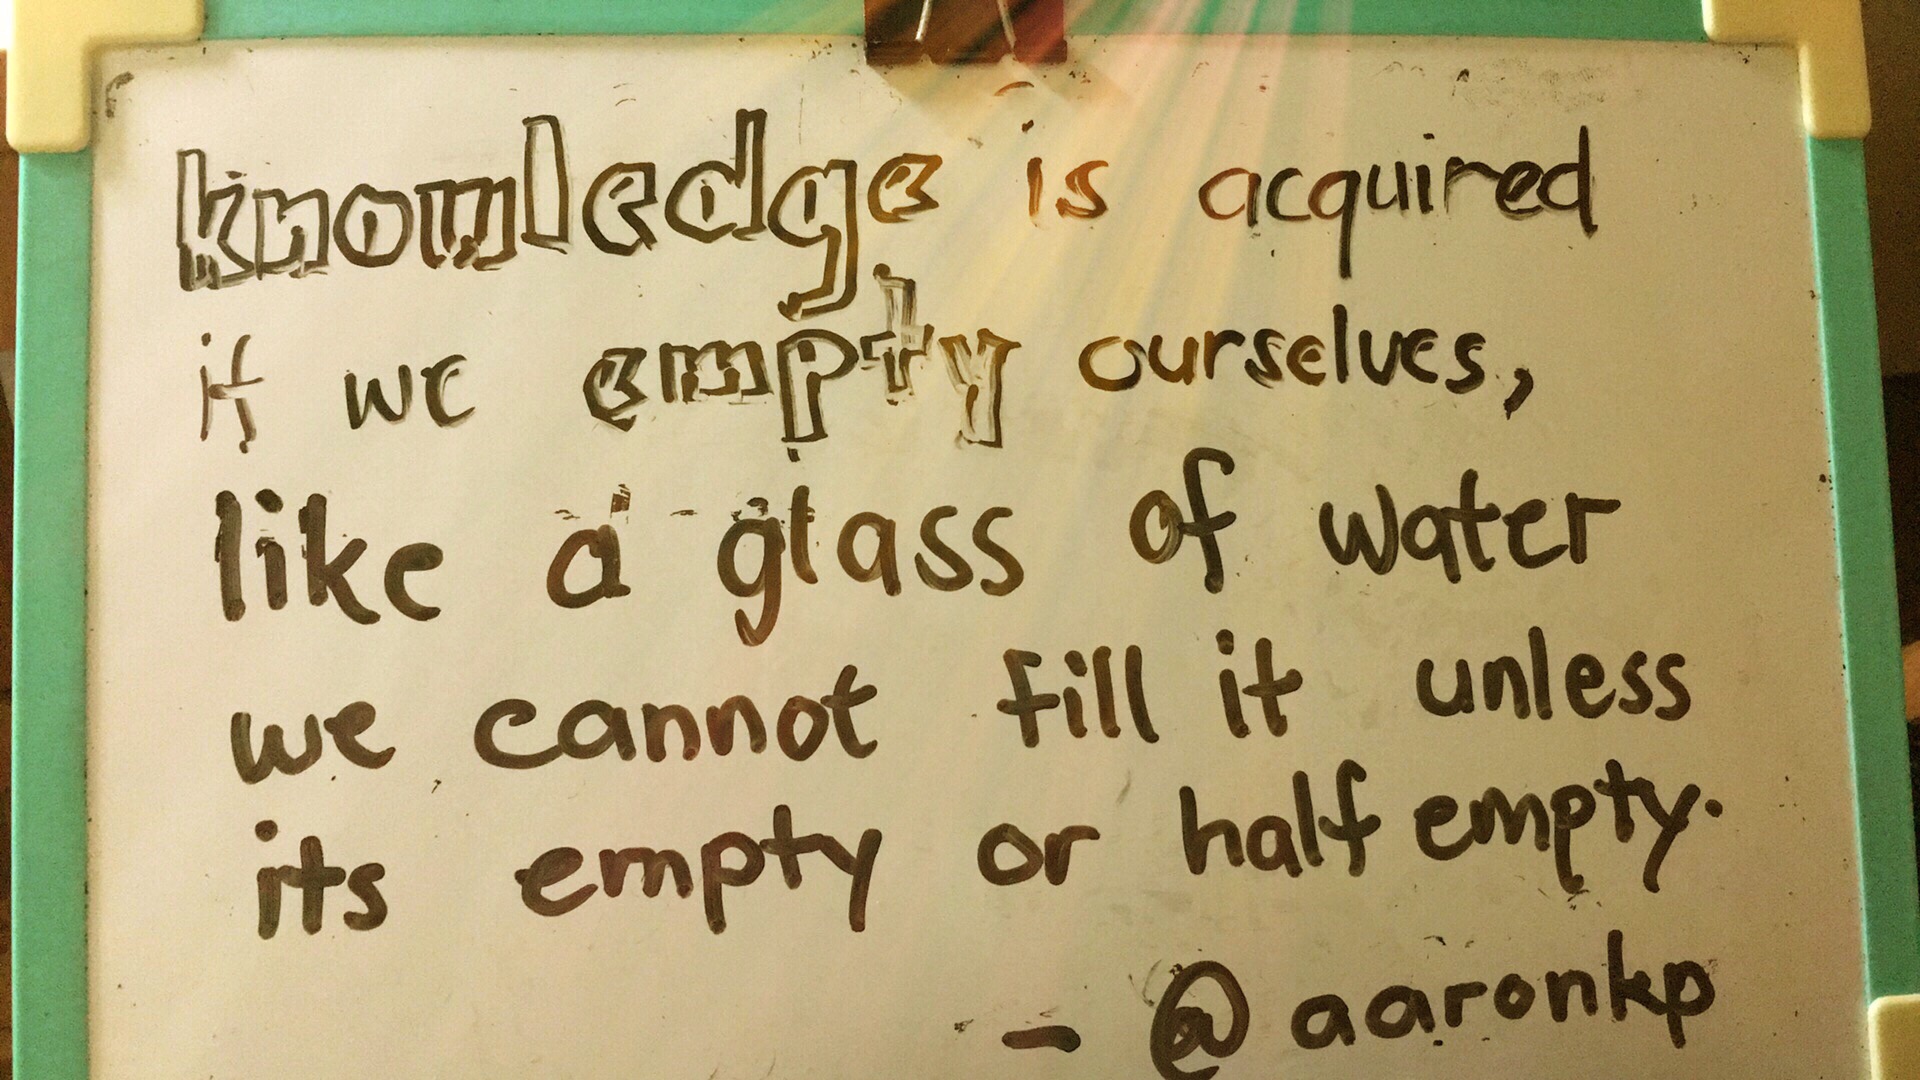 knowledge is acquired
if we empty ourselves,
like a glass of water
we cannot fill it unless
its empty or half empty.
- @aaronkp